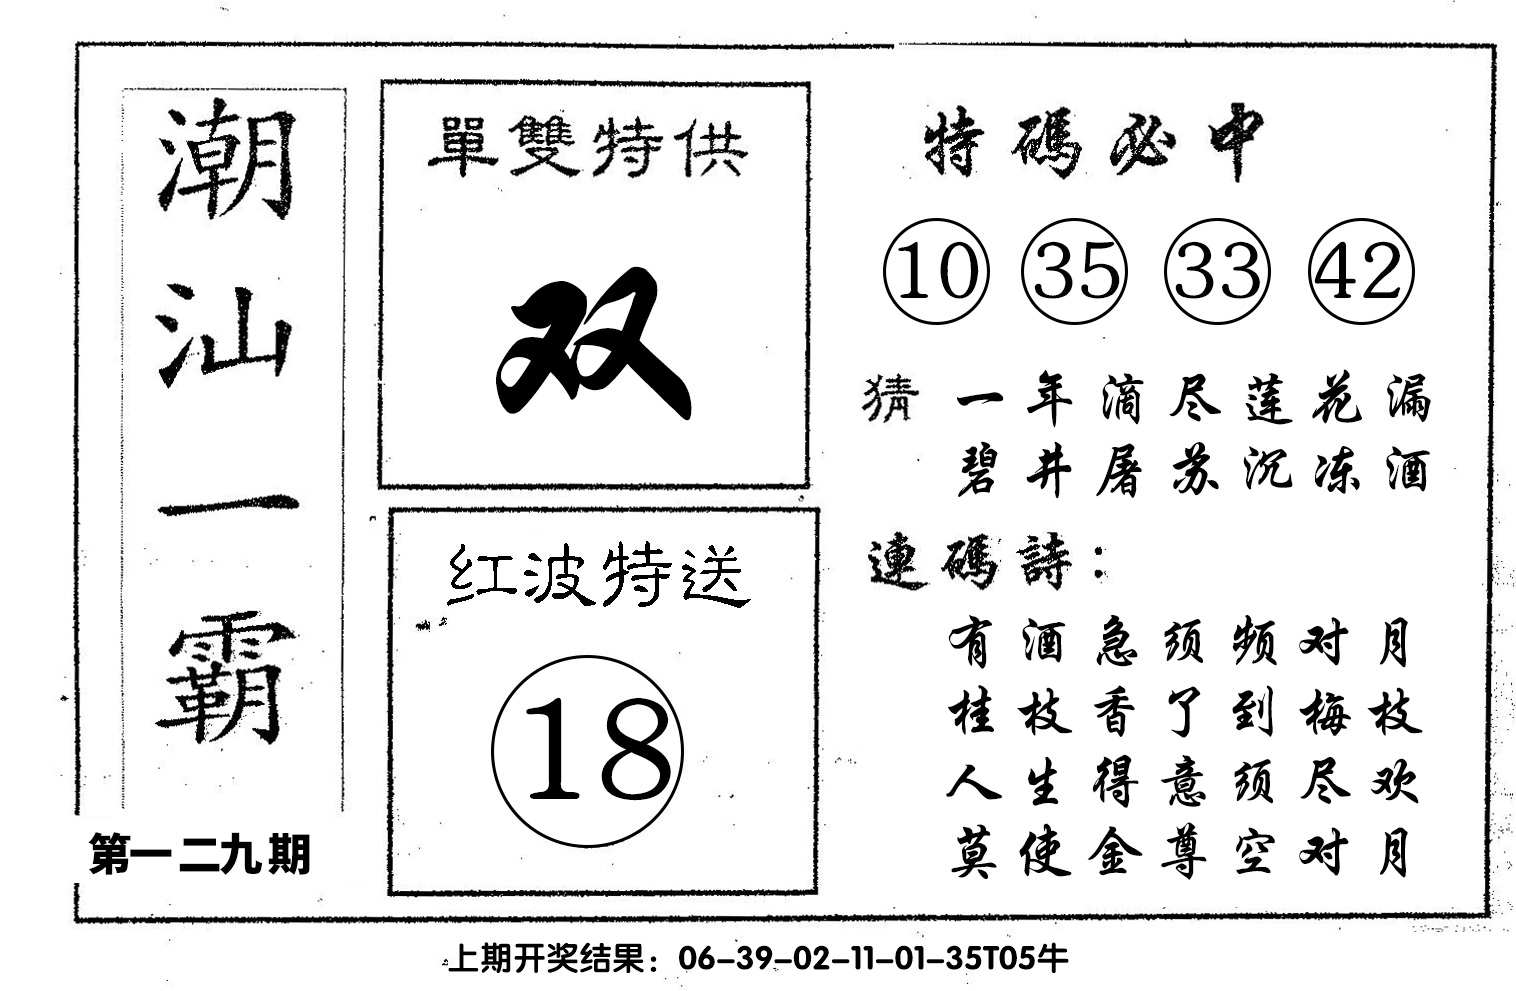 潮汕一霸
第一二九期
單雙特供
双
红波特送
18
特碼必中
10 35 33 42
猜 一年滴尽莲花漏
碧井屠苏沉冻酒
連碼詩：
有酒急须频对月
桂枝香了到梅枝
人生得意须尽欢
莫使金尊空对月
上期开奖结果：06-39-02-11-01-35T05牛